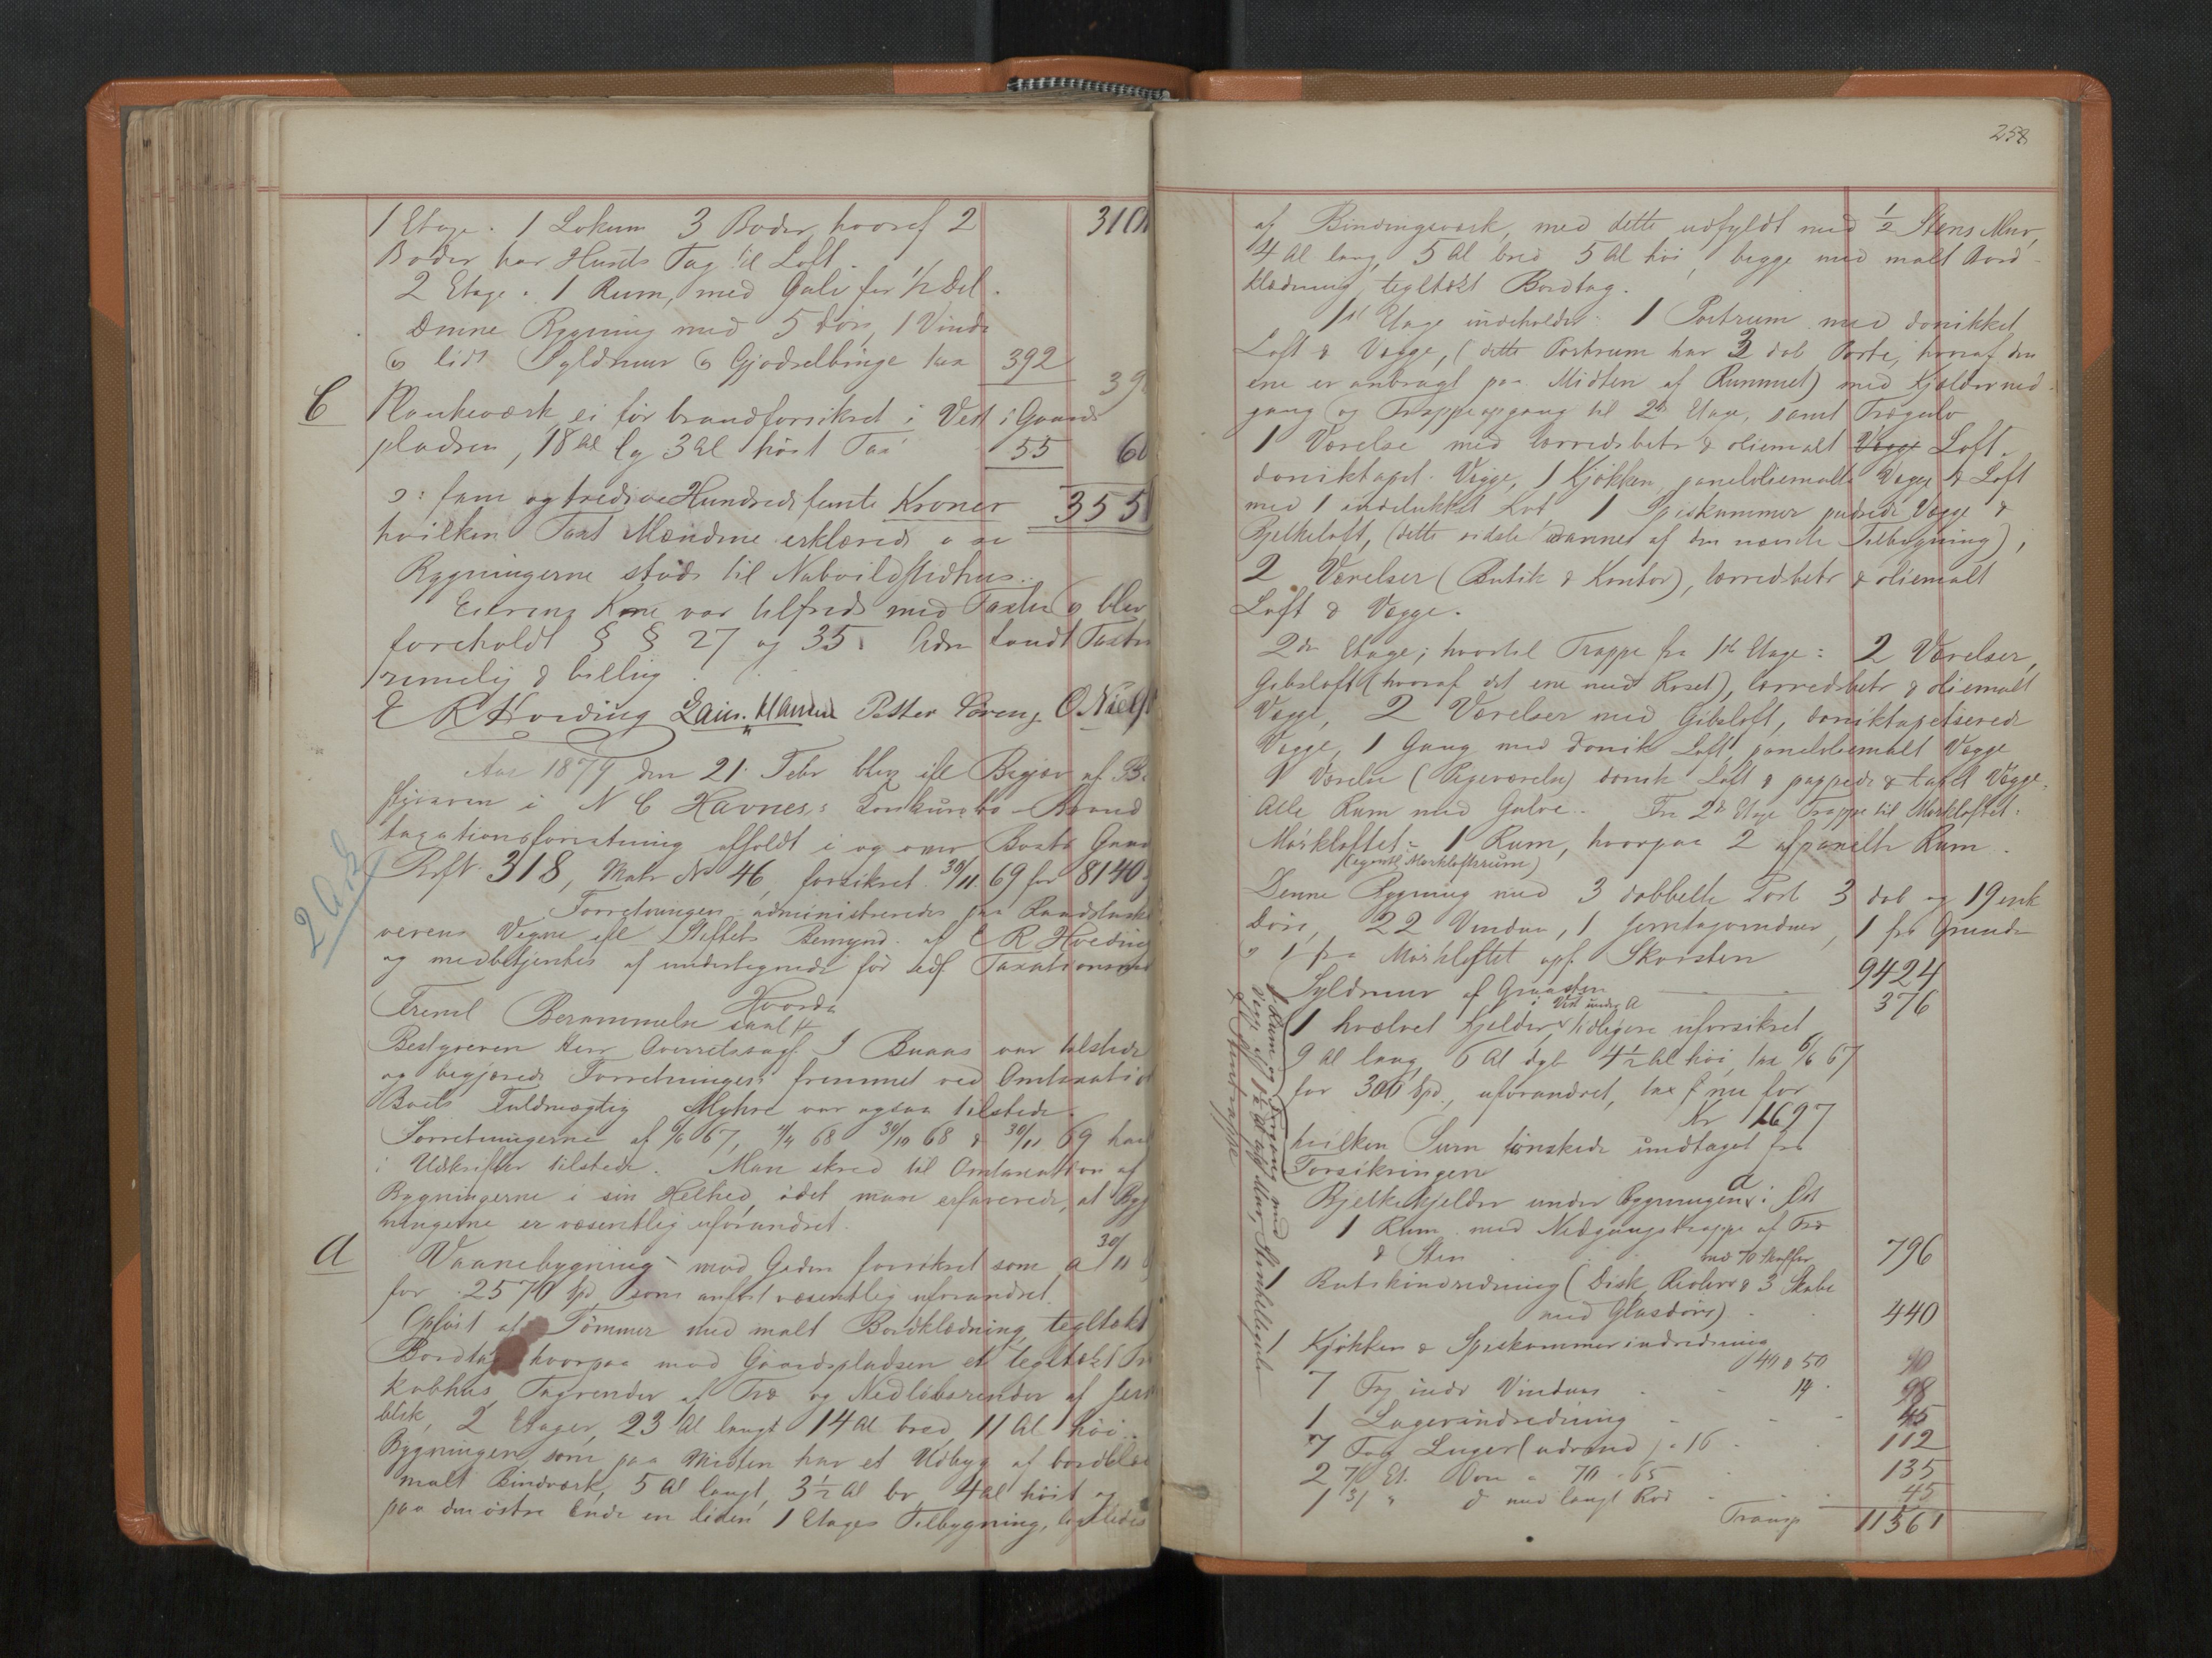 1 Etage. 1 Lokum 3 Boder, hvoraf 2 310
Boder har Husets Tag til Loft.
2 Etage. 1 Rum, med Gulv for 1/2 Del.
Denne Bygning med 5 Dør, 1 Vindu
og lidt Syldmur og Gjødselbinge tax 392
39
C Plankeværk ei før brandforsikret i Vest i Gaards
pladsen, 18 Al lg 3 Al høit Tax 55 60
ɔ: fem og tredive Hundrede femti Kroner 355
hvilken Taxt Mændene erklærede
Bygningerne støder til Nabovildstedhus.
Eierens Kone var tilfreds med Taxten og blev
foreholdt § § 27 og 35. Adm fandt Taxten
rimelig & billig.
E R Hvoding Laur. Hansen Petter Sørens. O. Niels
Aar 1879 den 21. Febr blev efter Begjær af Be
styreren i N C Havnes's Konkursbo Brand
taxationsforretning afholdt i og over Boets Gaard
2 Ark
Rfl. 318, Matr No 46, forsikret 30/11 69 for 8140
Forretningen administreredes paa Raadstuskri
verens Vegne efter Stiftets Bemynd. af E R Hvoding
og medbetjentes af undertegnede før edf. Taxationsmænd
Hvorda
Freml Berammelse saalt
Bestyreren Herr Overretssagf. J Buaas var tilstede
og begjærede Forretningen fremmet ved Omtaxation
Boets Fuldmægtig Myhre var ogsaa tilstede.
Forretningerne af 6/6 67, 4/4 68 30/10 68 & 30/11 69 hav
i Udskrifter tilstede. Man skred til Omtaxation af
Bygningerne i sin Helhed, idet man erfarede, at Byg
ningerne er væsentlig uforandret.
A Vaanebygning mod Gaden forsikret som a 30/11
for 2570 Spd som anført væsentlig uforandret.
Opført af Tømmer med malt Bordklædning, tegltækt
Bordtag hvorpaa mod Gaardspladsen et tegltækt Tra
kobhus, Tagrender af Træ og Nedløbsrender af Jern
blik, 2 Etager, 23 Al langt 14 Al bred, 11 Al høi.
Bygningen, som paa Midten har et Udbyg af bordklæd
malt Bindværk, 5 Al langt, 3 1/2 Al br, 4 Al høit og
paa den østre Ende en liden 1 Etages Tilbygning, ligeledes
258
af Bindingsværk, med dette udfyldt med 1/2 Stens Mur,
4 Al lang, 5 Al bred 5 Al høi, begge med malt Bord-
klædning, tegltækt Bordtag.
1ste Etage indeholder: 1 Portrum med donikket
Loft & Vægge, (dette Portrum har 3 dob Porte, hvoraf den
ene er anbragt paa Midten af Rummet) med Kjældernedgang
gang og Trappeopgang til 2den Etage, samt Trægulv
1 Værelse med lærredsbetr & oliemalt Vægge Loft.
doniktapet. Vægge, 1 Kjøkken paneloliemalte Vægge & Loft
med 1 indelukket Rod 1 Spiskammer pudsede Vægge &
Bjelkeloft, (dette sidste dannet af den nævnte Tilbygning),
2 Værelser (Butik & Kontor), lærredsbetr & oliemalt
Loft & Vægge.
2den Etage; hvortil Trappe fra 1ste Etage: 2 Værelser,
Gibsloft (hvoraf det ene med Roset), lærredsbetr & oliemalt
Vægge, 2 Værelser med Gibsloft, doniktapetserede
Vægge, 1 Gang med donik Loft, paneloliemalt Vægge
1 Værelse (Pigeværelse) donik Loft & pappede & taxlt Vægge.
Alle Rum med Gulve. Fra 2d Etage Trappe til Mørkloftet:
Mørkloftet: 1 Rum, hvorpaa 2 afpanelte Rum.
(egentl Mørkloftsrum)
Denne Bygning med 3 dobbelte Port 3 dob og 19 enk
Døre, 22 Vinduer, 1 Jerntagvinduer, 1 fra Grunden
& 1 fra Mørkloftet opf. Skorsten 9424
Syldmur af Graasten 376
i Vest under A
1 hvælvet Kjelder, tidligere uforsikret
9 Al lang, 6 Al dyb 4 1/2 Al høi, tax 6/6 67
for 300 Spd., uforandret, tax f nu for
Kr 1697
hvilken Sum ønskede undtaget fra
Forsikringen
Bjelkekjelder under Bygningen a i Øst
1 Rum med Nedgangstrappe af Træ
& Sten 796
med 70 Skuffer
1 Butikindredning (Disk, Reoler & 3 Skabe
med Glasdøre) 440
1 Kjøkken & Speskammerindredning
40 & 50 90
7 Fag indv Vinduer 14. 98
1 Lagerindredning 45
7 Fag Luger (udvend) a 16 112
2 7/6 Et. Ovn a 70 & 65 135
1 3/ " d med langt Rør 45
Transp 11561